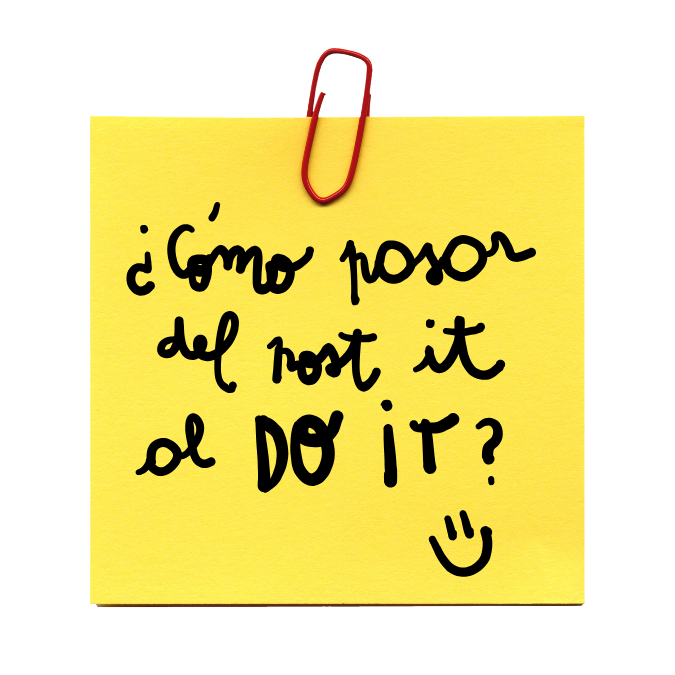 ¿Cómo pasar
del post it
al DO iT?